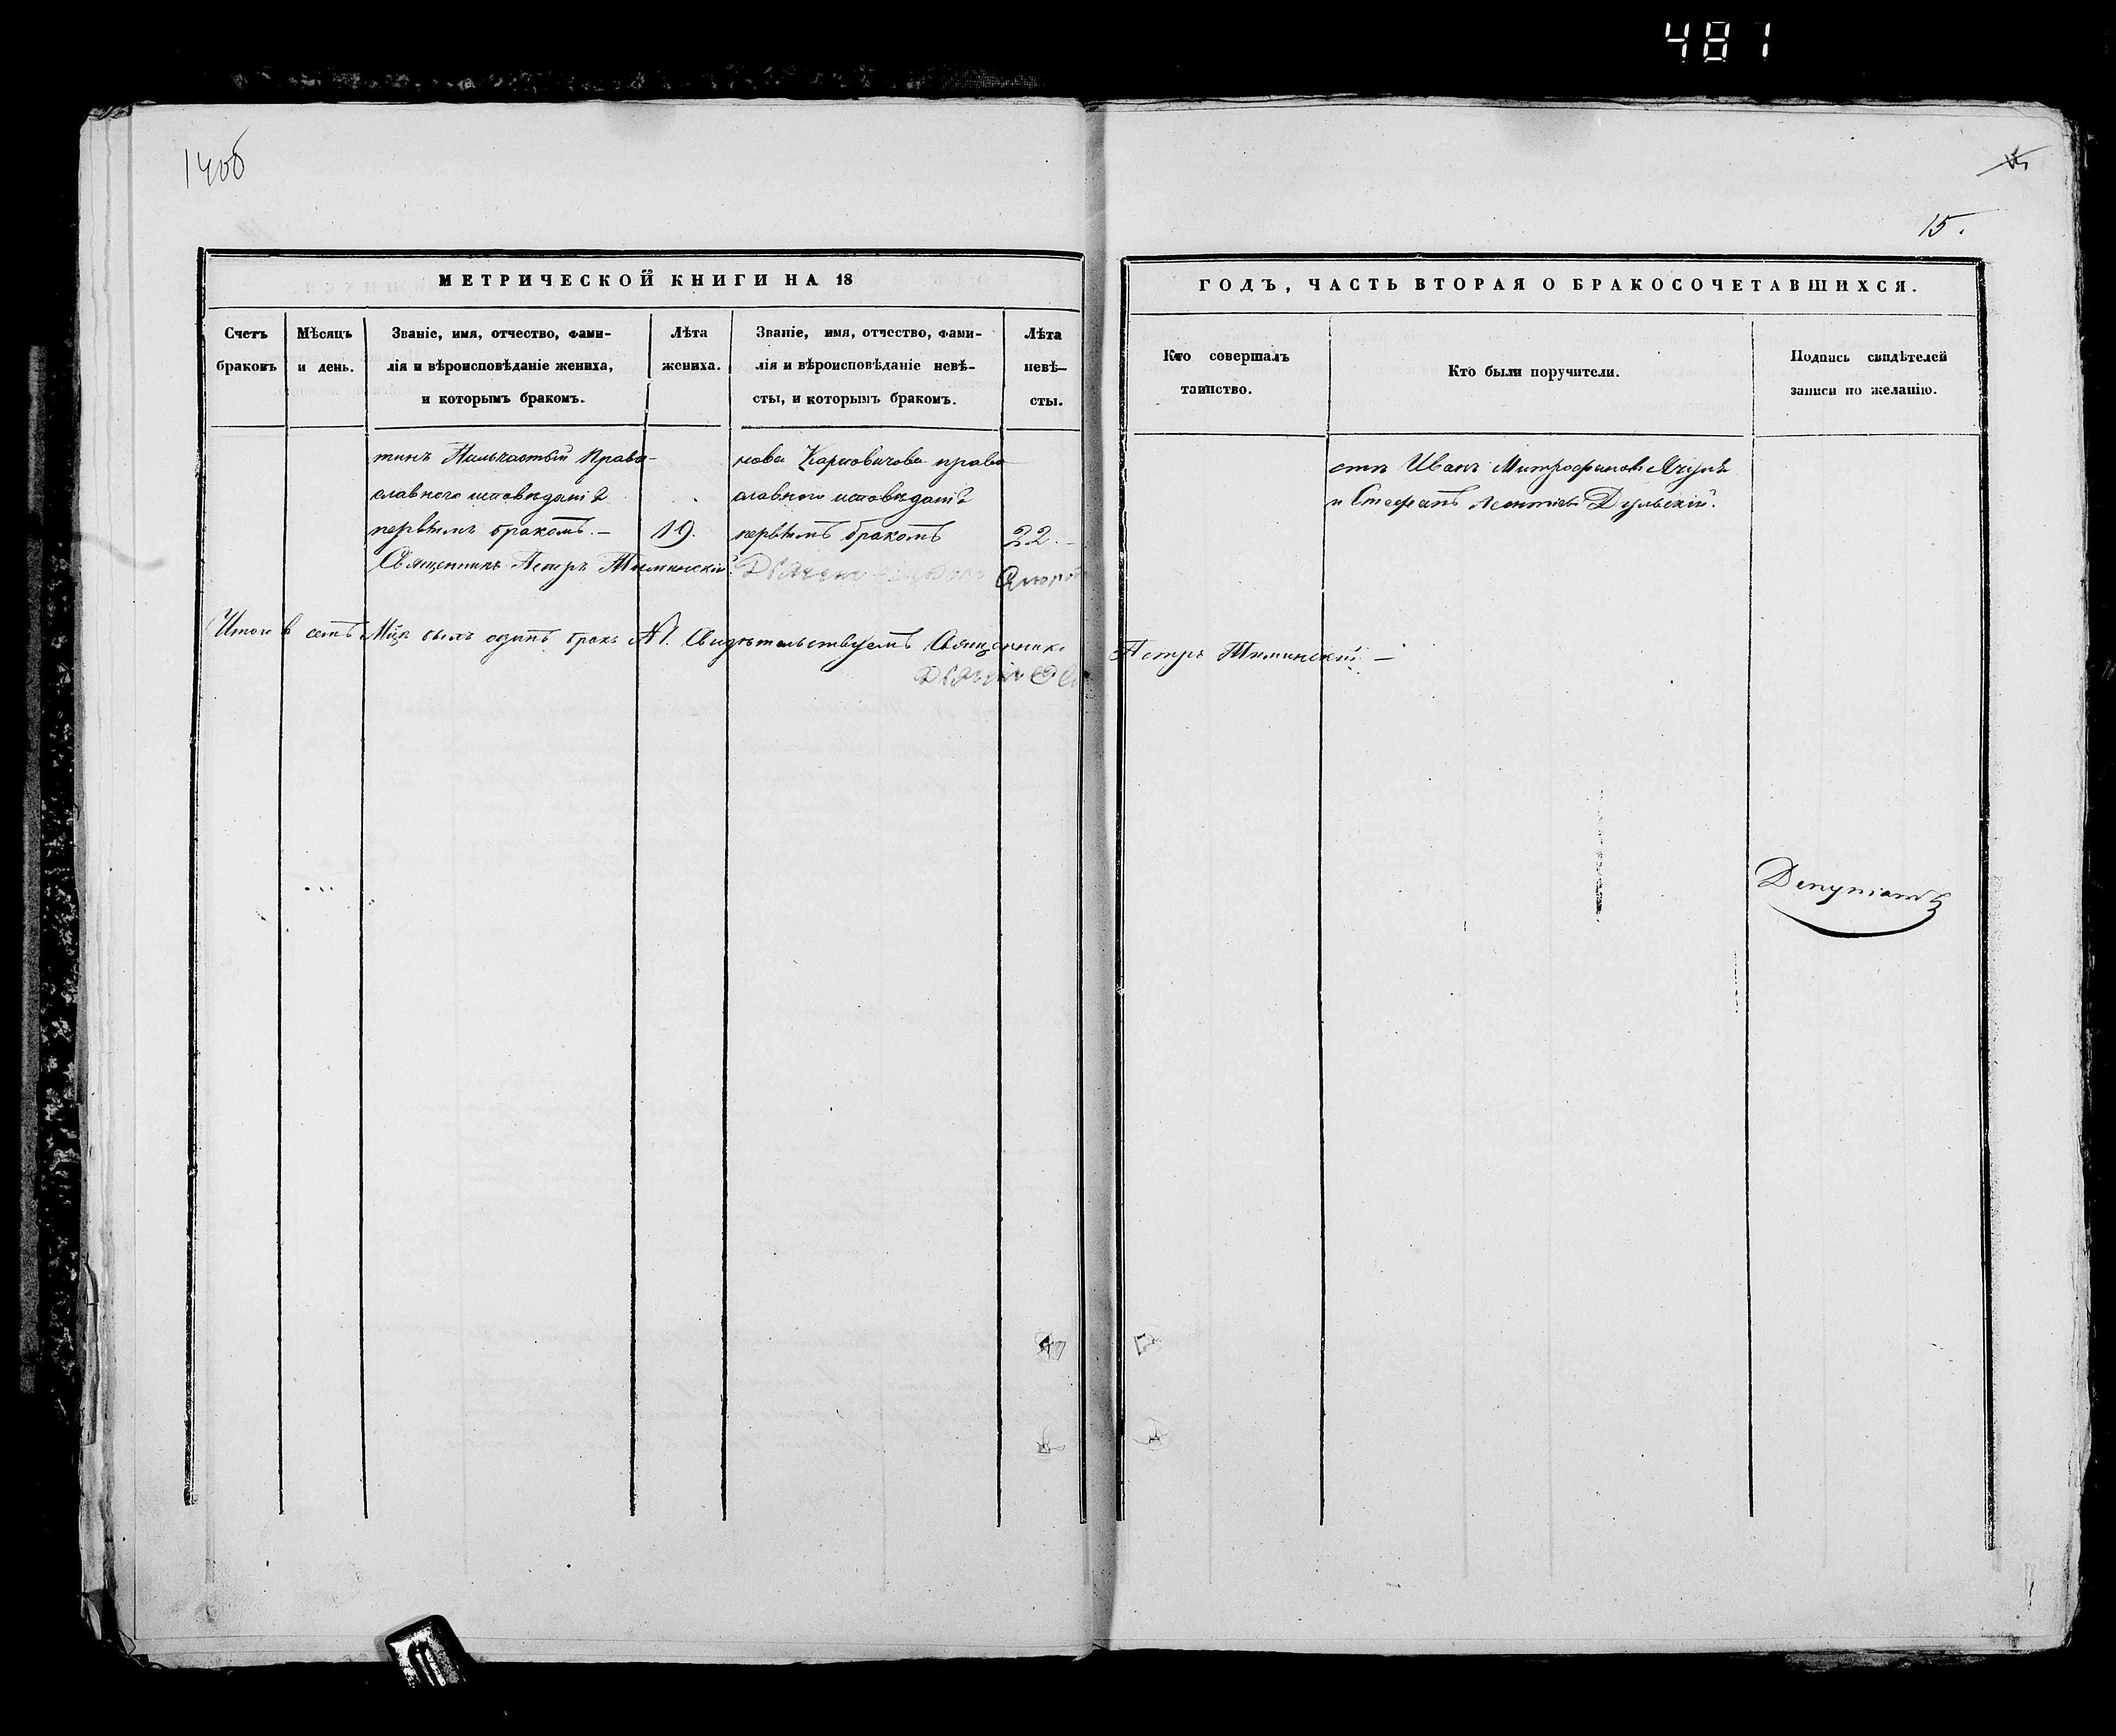 481
14об
15.
МЕТРИЧЕСКОЙ КНИГИ НА 18
Счетъ браковъ
Мѣсяцъ и день.
Званіе, имя, отчество, фами-
лія и вѣроисповѣданіе жениха,
и которымъ бракомъ.
Лѣта
жениха.
Званіе, имя, отчество, фами-
лія и вѣроисповѣданіе невѣ-
сты, и которымъ бракомъ.
Лѣта
невѣ-
сты.
тинъ Право-
славного исповѣданія
первымъ бракомъ.—
19.
Священникъ Петръ
нова Карповичова право
славного исповѣданія
первымъ бракомъ
22.—
Итого в семъ М̃цѣ былъ одинъ бракъ №1. Свидѣтельствуемъ Священникъ
ГОДЪ, ЧАСТЬ ВТОРАЯ О БРАКОСОЧЕТАВШИХСЯ.
Кто совершалъ
таинство.
Кто были поручители.
Подпись свидѣтелей
записи по желанію.
Иванъ Митрофановъ
и Стефанъ Леонтіевъ Дульскій.
Петръ
Депутатъ